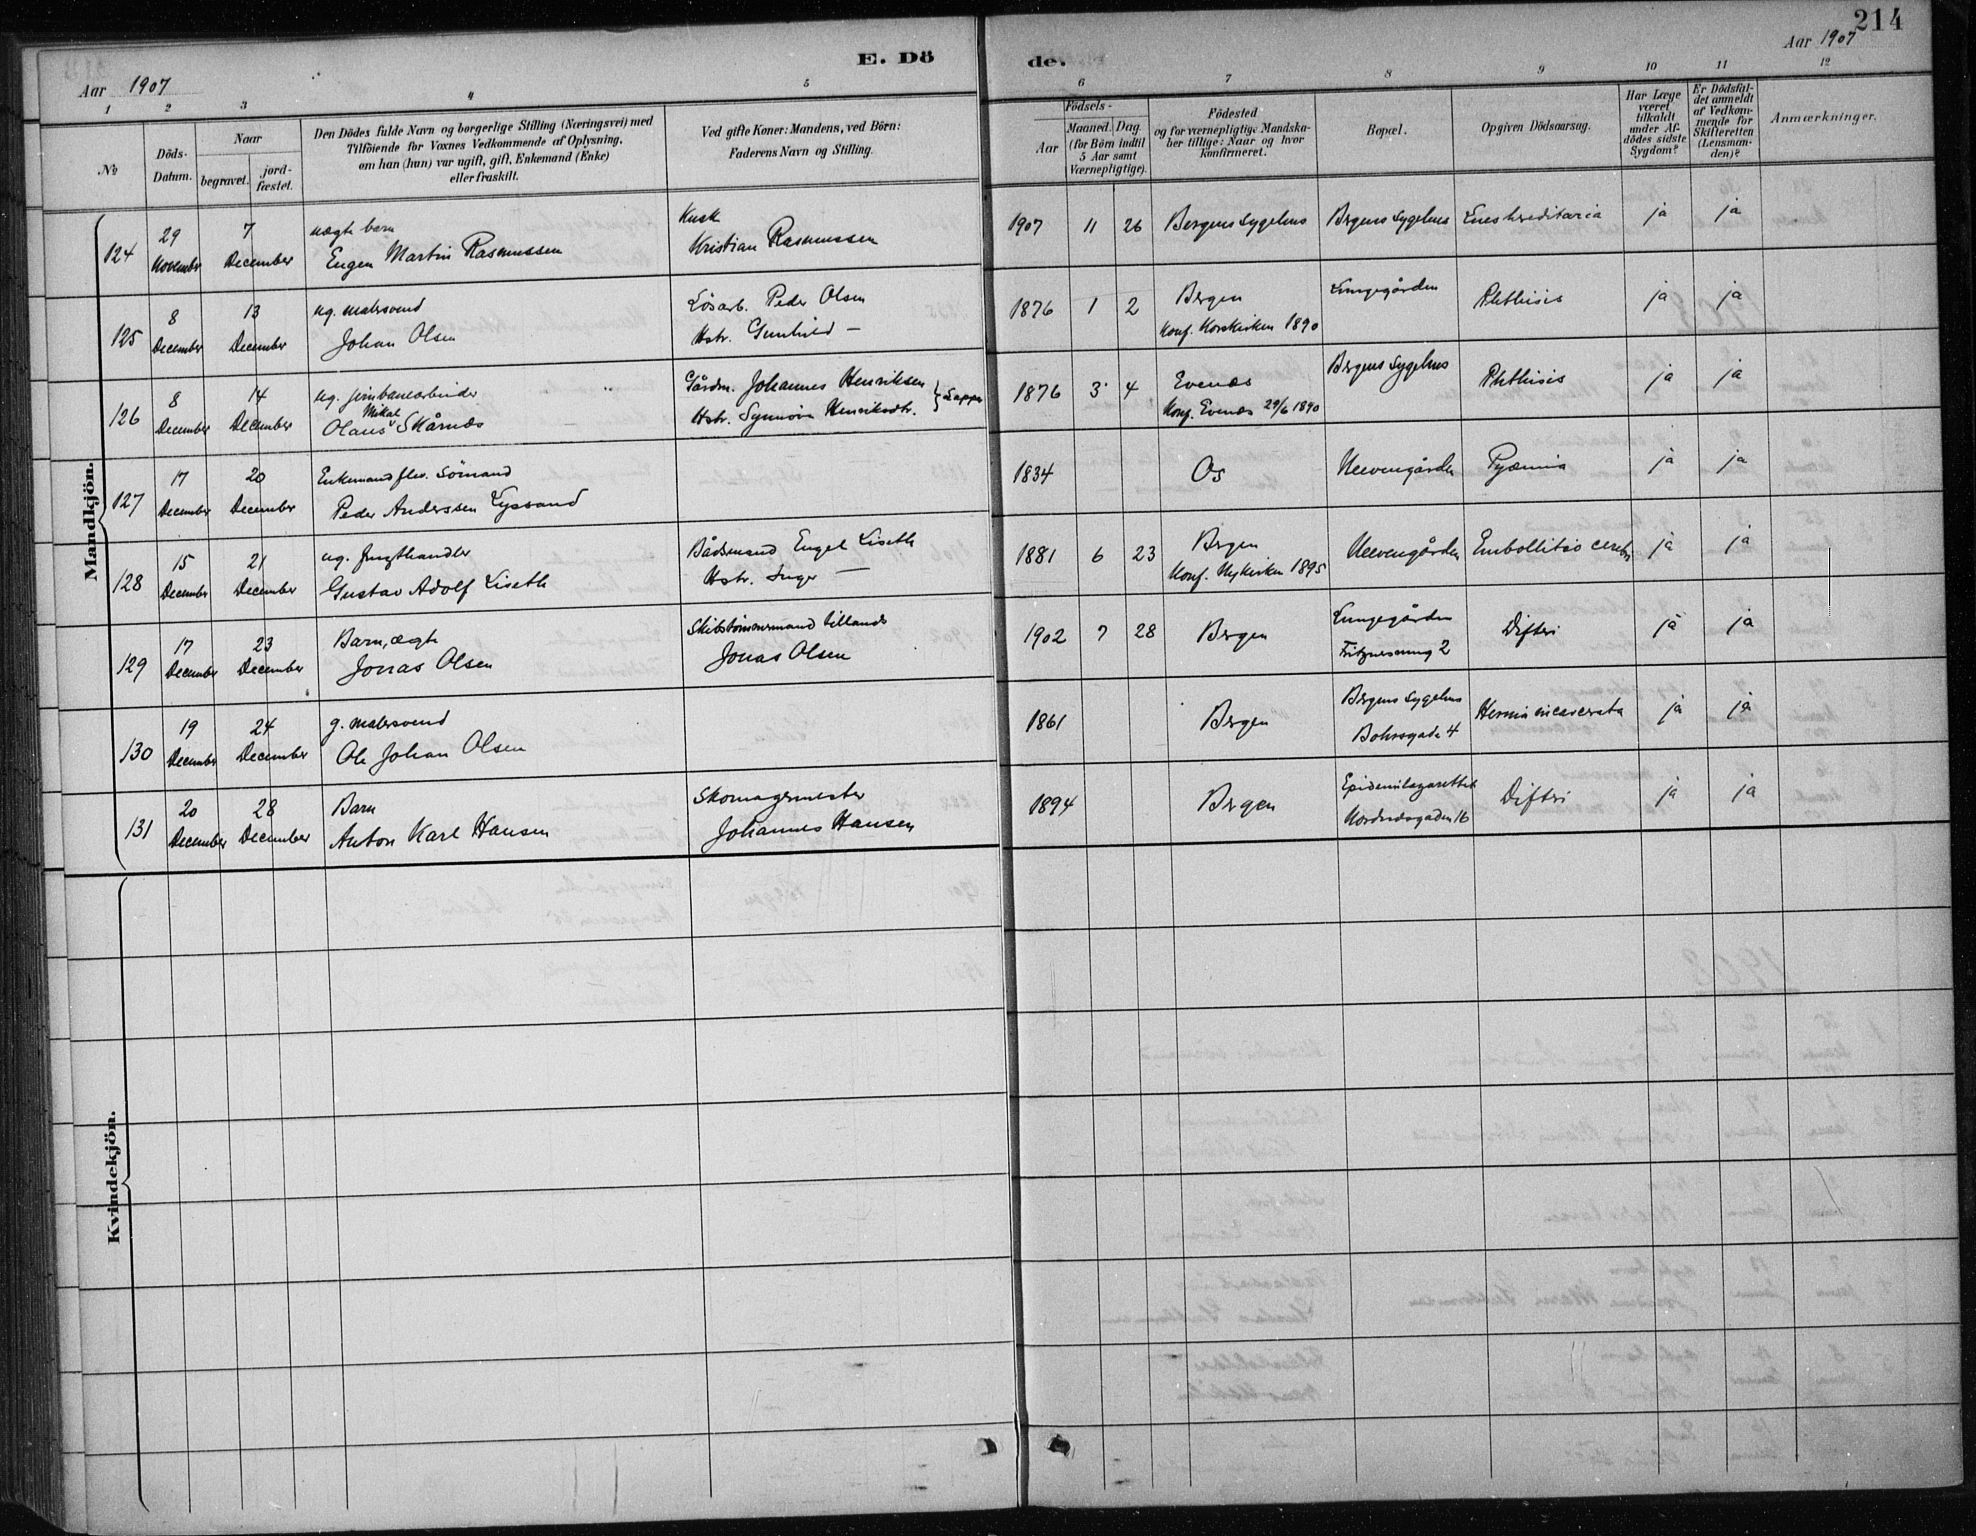 214
E. Dö
de.
Aar 1907
Aar 1907
1 2 3 4 5 6 7 8 9 10 11 12
No
Döds-Datum.
Naar
begravet.
jord-fæstet.
Den Dödes fulde Navn og borgerlige Stilling (Næringsvei) med
Tilföiende for Voxnes Vedkommende af Oplysning,
om han (hun) var ugift, gift, Enkemand (Enke)
eller fraskilt.
Ved gifte Koner: Mandens, ved Börn:
Faderens Navn og Stilling.
Födsels-
Aar
Maaned. Dag.
(for Börn indtil
5 Aar samt
Værnepligtige).
Födested
og for værnepligtige Mandska-
ber tillige: Naar og hvor
konfirmeret.
Bopæl.
Opgiven Dödsaarsag.
Har Læge
været
tilkaldt
under Af-
dödes sidste
Sygdom?
Er Dödsfal-
det anmeldt
af Vedkom-
mende for
Skifteretten
(Lensman-
den)?
Anmærkninger.
Mandkjön.
124 29 November 7 December uægte barn
Eugen Martin Rasmussen
Kusk
Kristian Rasmussen
1907 11 26 Bergens Sygehus Bergens Sygehus Lues hereditaria ja ja
125 8 December 13 December ug. malersvend
Johan Olsen
Lösarb. Peder Olsen
Hstr. Gunhild —
1876 1 2 Bergen
Konf. Korskirken 1890
Lungegården Phthisis ja ja
126 8 December 14 December ug. jernbanearbeider
Olaus Mikal Skårnæs
Gårdm. Johannes Henriksen
Hstr. Synnöva Henriksdtr. } Lapper
1876 3 4 Evenæs
Konf. Evenæs 29/6 1890
Bergens Sygehus Phthisis ja ja
127 17 December 20 December Enkemand flev. Sömand
Peder Anderssen Lyssand
1834 Os Neevengården Pyæmia ja ja
128 15 December 21 December ug.
Gustav Adolf Liseth
Bådsmand Engel Liseth
Hstr. Inger —
1881 6 23 Bergen
Konf. Nykirken 1895
Neevengården cerebri ja ja
129 17 December 23 December Barn, ægte
Jonas Olsen
Skibstömmermand tillands
Jonas Olsen
1902 7 28 Bergen Lungegården
2
Difteri ja ja
130 19 December 24 December g. malersvend
Ole Johan Olsen
1861 Bergen Bergens Sygehus
Bohrsgade 4
Hernia incarcerata ja ja
131 20 December 28 December Barn
Anton Karl Hansen
Skomagermester
Johannes Hansen
1894 Bergen Epidemilazarettet
Nordnæsgaden 16
Difteri ja ja
Kvindekjön.